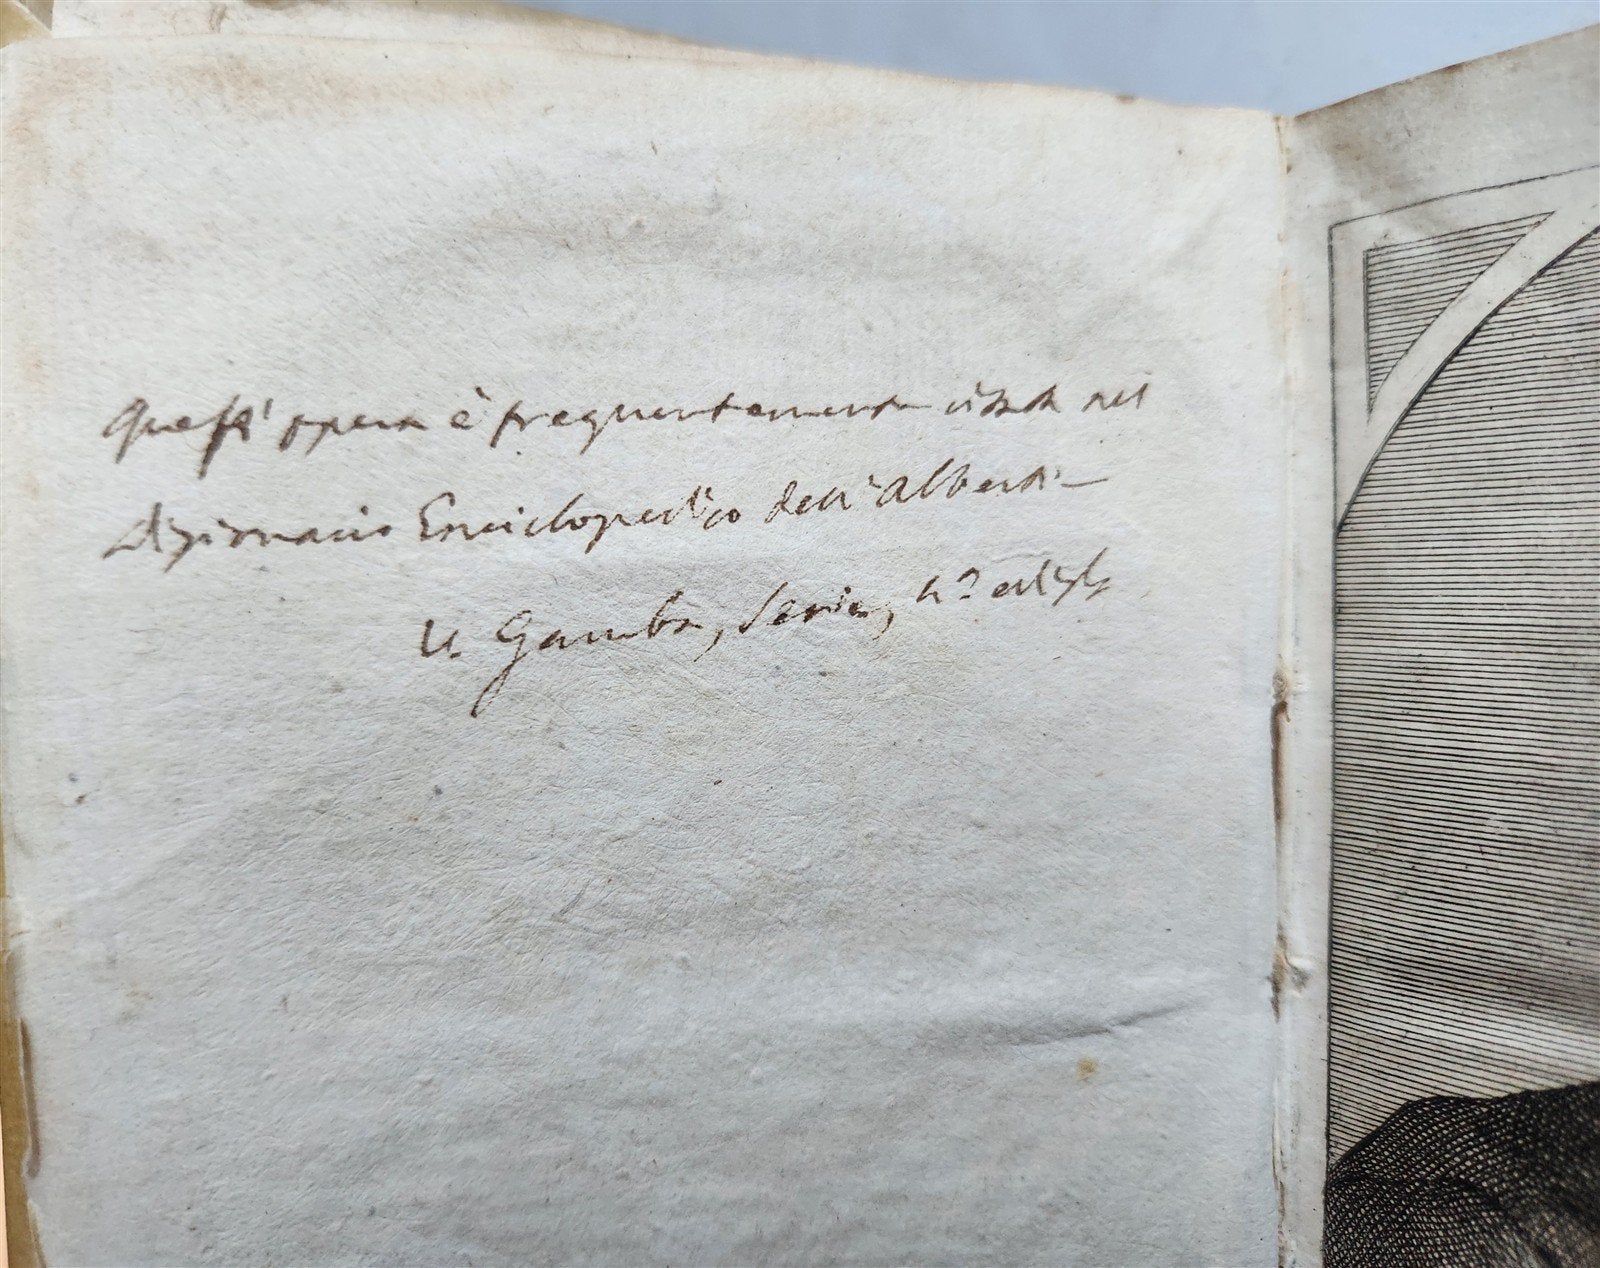 Quest'opera è frequentemente citata nel
dizionario Enciclopedico dell'Alberti
V. Gamba, Serie, 4ª ediz.